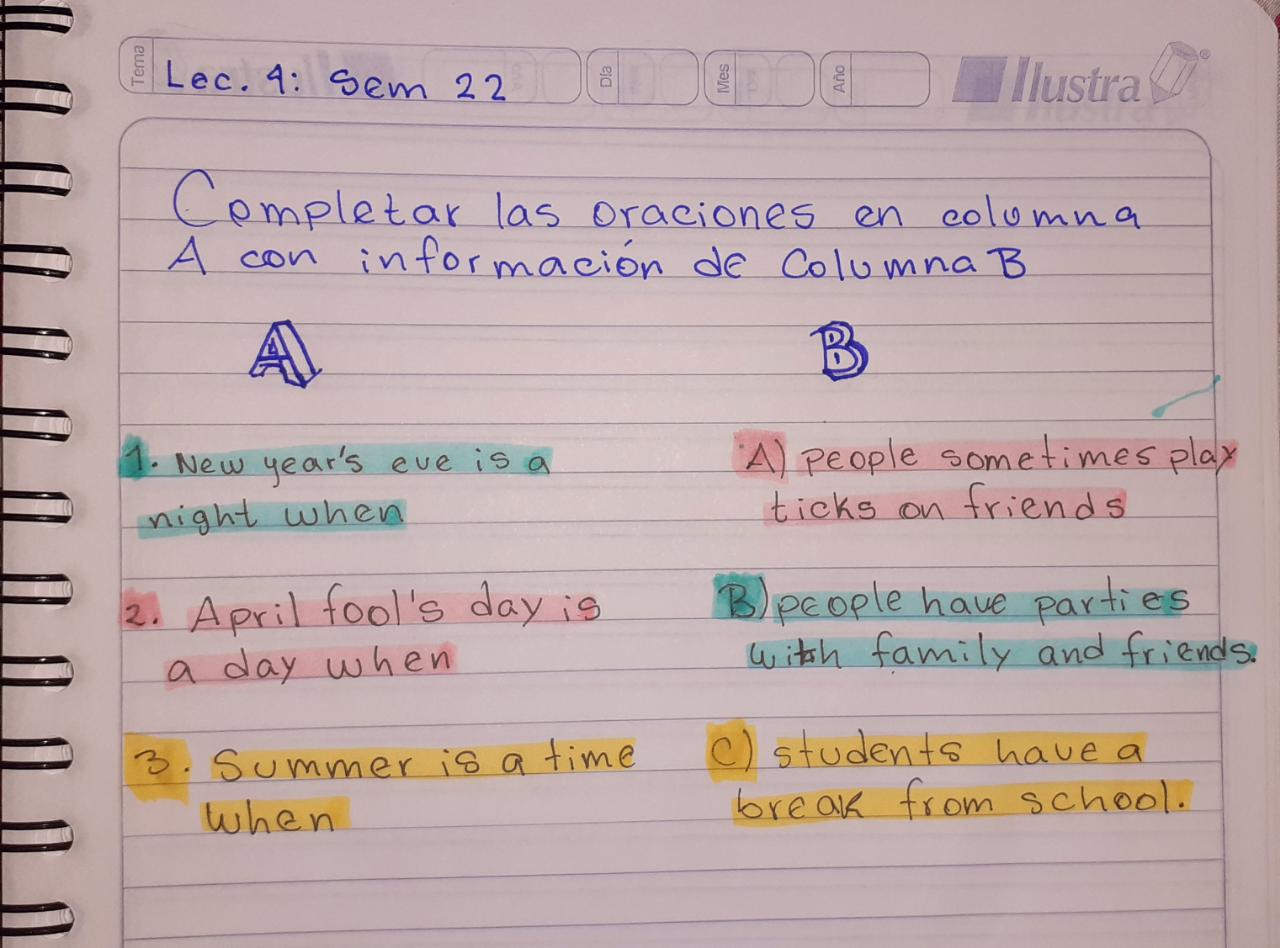 Tema Lec. 4: Sem 22 Día Mes Año Ilustra®
Completar las oraciones en columna
A con información de Columna B
A B
1. New year's eve is a
night when
A) people sometimes play
ticks on friends
2. April fool's day is
a day when
B) people have parties
with family and friends.
3. Summer is a time
when
C) students have a
break from school.